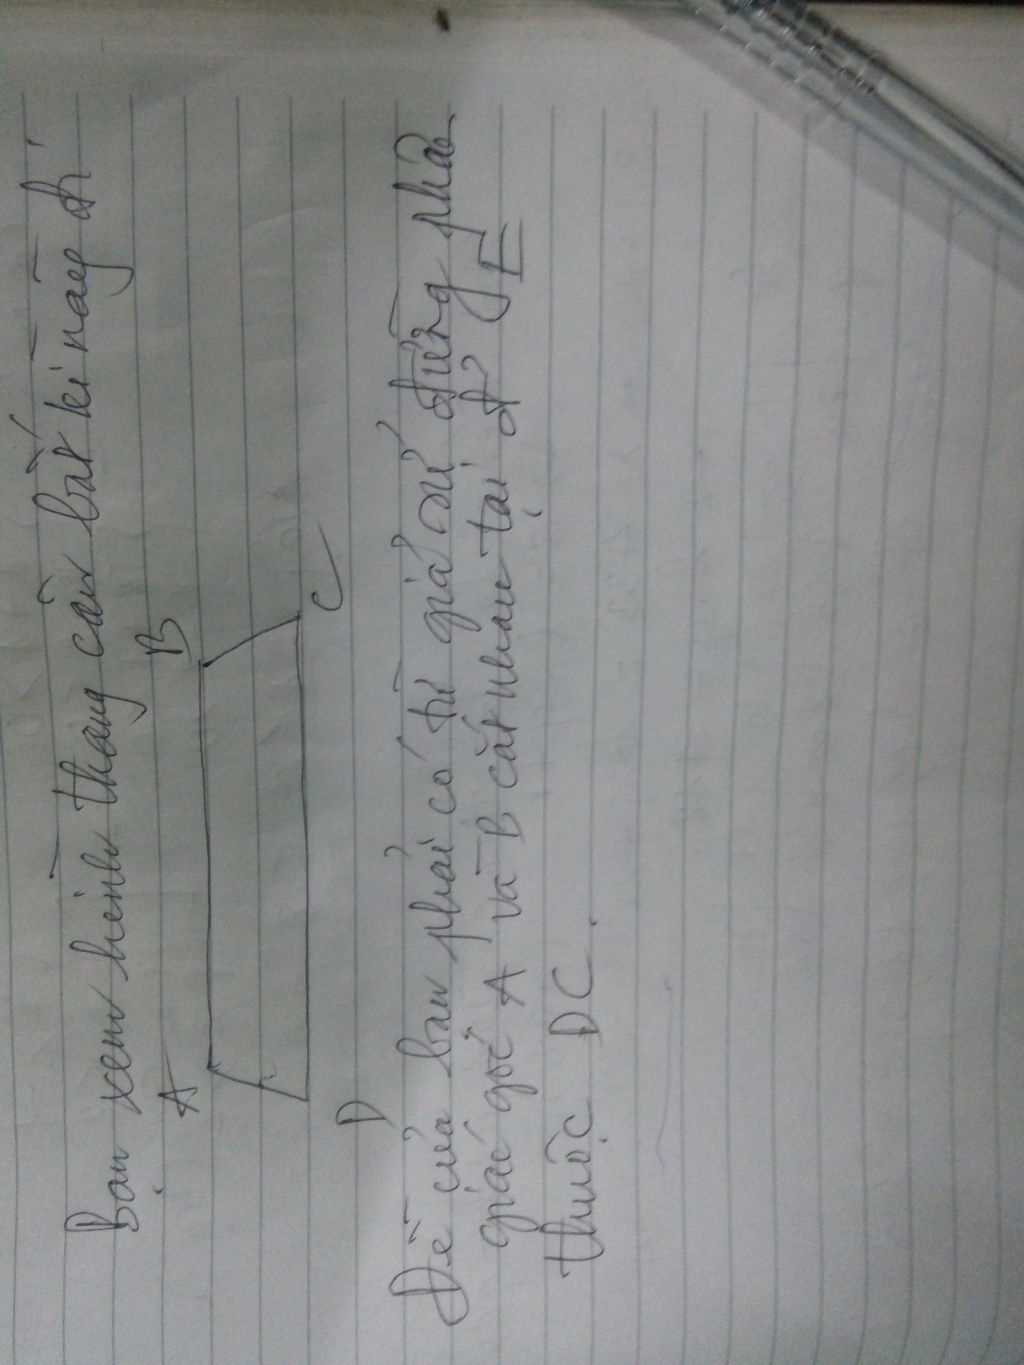 Bạn xem hình thang cân bất kì này đi
A B
D C
Đề của bạn phải có từ giả sử đường phân
giác góc A và B cắt nhau tại đ' E
thuộc DC.